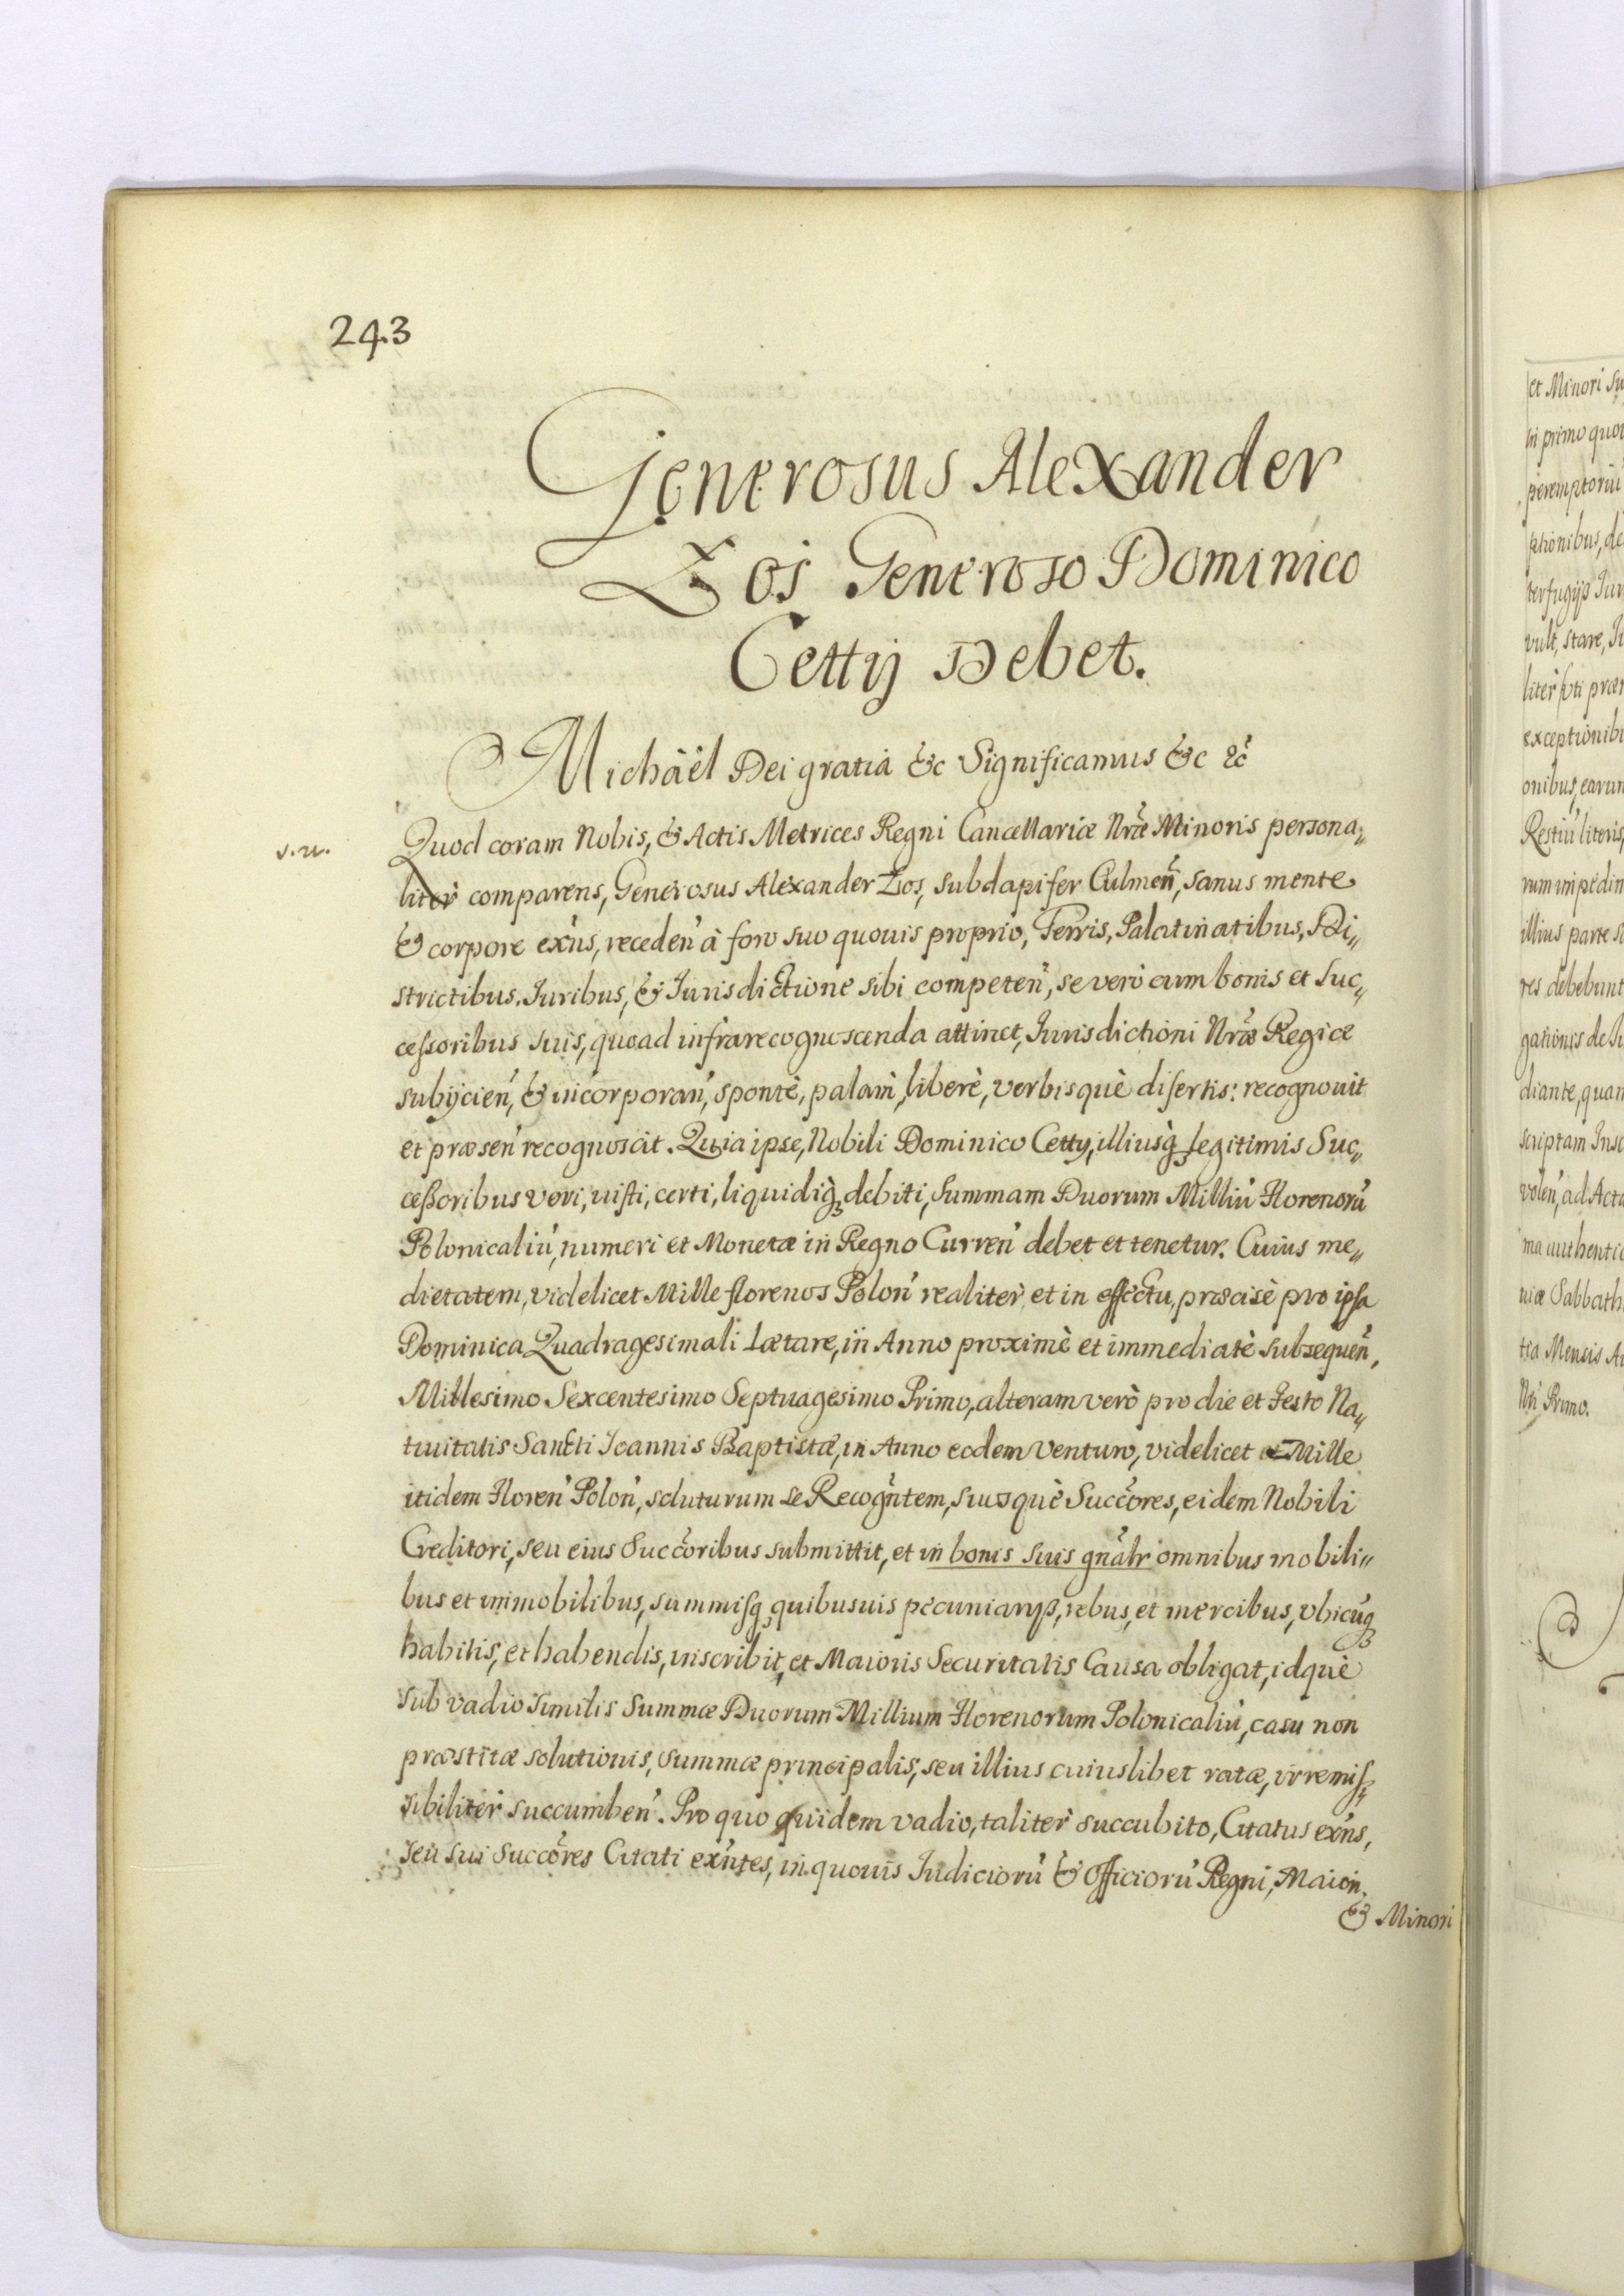 243
Generosus Alexander
Zos Generoso Dominico
Cettÿ Debet.
Michäêl Dei gratia &c Significamus &c &c
v.n.
Quod coram Nobis, & Actis Metrices Regni Cancellariæ Nræ Minoris persona„
liter comparens, Generosus Alexander Zos, subdapifer Culmeñ, sanus mente
& corpore exñs, receden' à foro suo quouis proprio, Terris, Palatinatibus, Di„
strictibus, Iuribus, & Iurisdictione sibi competen', se vero cum bonis et Suc„
cessoribus suis, quoad infrarecognoscenda attinet, Iurisdictioni Nræ Regiæ
subijcien', & incorporan', spontè, palàm, liberè, verbisquè disertis: recognouit
et præsen' recognoscit. Quia ipse, Nobili Dominico Cetty, illiusq; legitimis Suc„
cessoribus veri, iusti, certi, liquidiq; debiti, Summam Duorum Milliu' Florenoru'
Polonicaliu', numeri et Monetæ in Regno Curren' debet et tenetur. Cuius me„
dietatem, videlicet Mille florenos Polon' realiter et in effectu, præcisè pro ipsa
Dominica Quadragesimali Lætare, in Anno proximè et immediatè subsequeñ,
Millesimo Sexcentesimo Septuagesimo Primo, alteram verò pro die et Festo Na„
tiuitatis Sancti Ioannis Baptistæ, in Anno eodem Venturo, videlicet et Mille
itidem Floren' Polon', soluturum se Recogñtem, suosquè Succ̃ores, eidem Nobili
Creditori, seu eius Succ̃oribus submittit, et in bonis suis gñalr omnibus mobili„
bus et immobilibus, summisq; quibusuis pecuniarys, rebus, et mercibus, vbicuq;
habitis, et habendis, inscribit, et Maioris Securitatis Causa obligat, idquè
sub vadio similis Summæ Duorum Millium Florenorum Polonicaliu', casu non
præstitæ solutionis, Summæ principalis, seu illius cuiuslibet ratæ, irremis„
sibiliter succumben'. Pro quo quidem vadio, taliter succubito, Citatus exñs,
seu sui Succ̃ores Citati exñtes, in quouis Iudicioru' & Officioru' Regni, Maiori,
& Minori
et Minori su
in primo quo
vult, stare, Iu
exceptionib
onibus, earun
illius parte s
res debebunt
gationis de Iu
diante, quan
scriptam Insc
volen', ad Acta
ma authentic
tia Mensis A
Nri Primo.